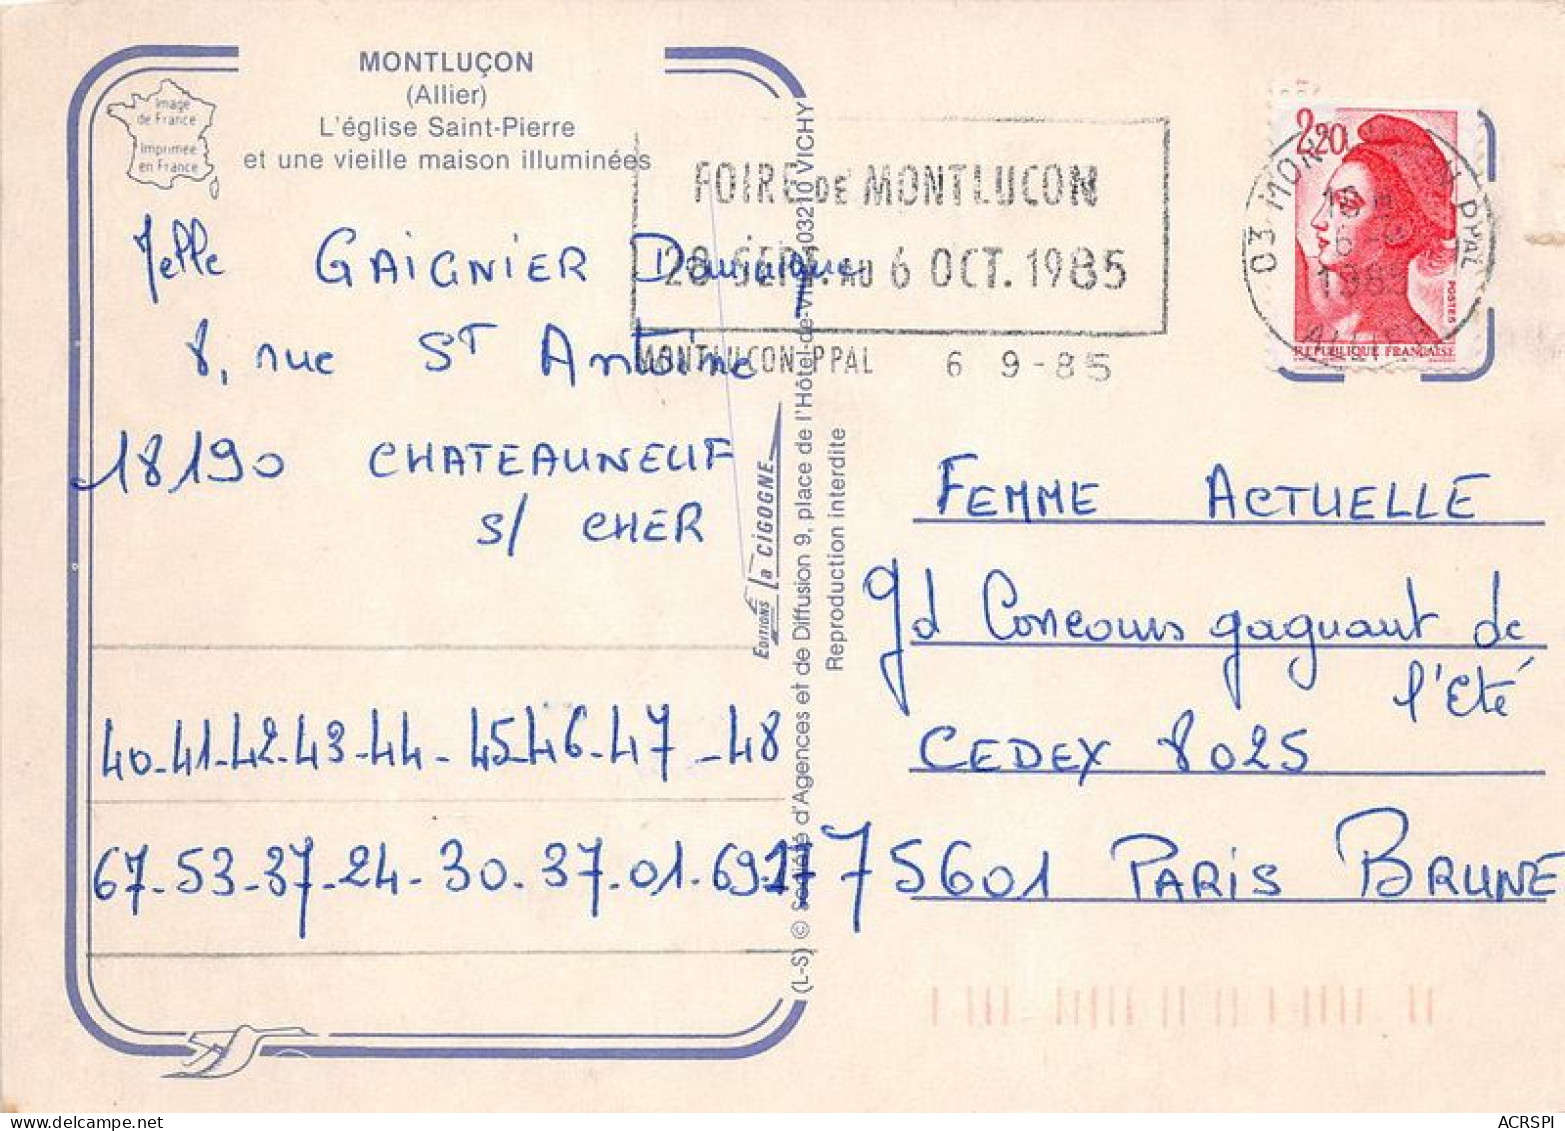 MONTLUÇON
(Allier)
L'église Saint-Pierre
et une vieille maison illuminées
Image
de France
Imprimée
en France
Melle GAIGNIER Dominique
8, rue ST Antoine
18190 CHATEAUNEUF
S/ CHER
40-41-42-43-44-45-46-47-48
67-53-37-24-30-37-01-69-17
EDITIONS la CIGOGNE
(L-S) © Société d'Agences et de Diffusion 9, place de l'Hôtel-de-Ville 03210 VICHY
Reproduction interdite
FOIRE DE MONTLUCON
28 SEPT. AU 6 OCT. 1985
MONTLUCON PPAL 6 9-85
2,20
POSTES
REPUBLIQUE FRANÇAISE
03 MON PPAL
1985
ALLIER
FEMME ACTUELLE
gd Concours gagnant de
l'Eté
CEDEX 8025
75601 PARIS BRUNE
ACRSPI